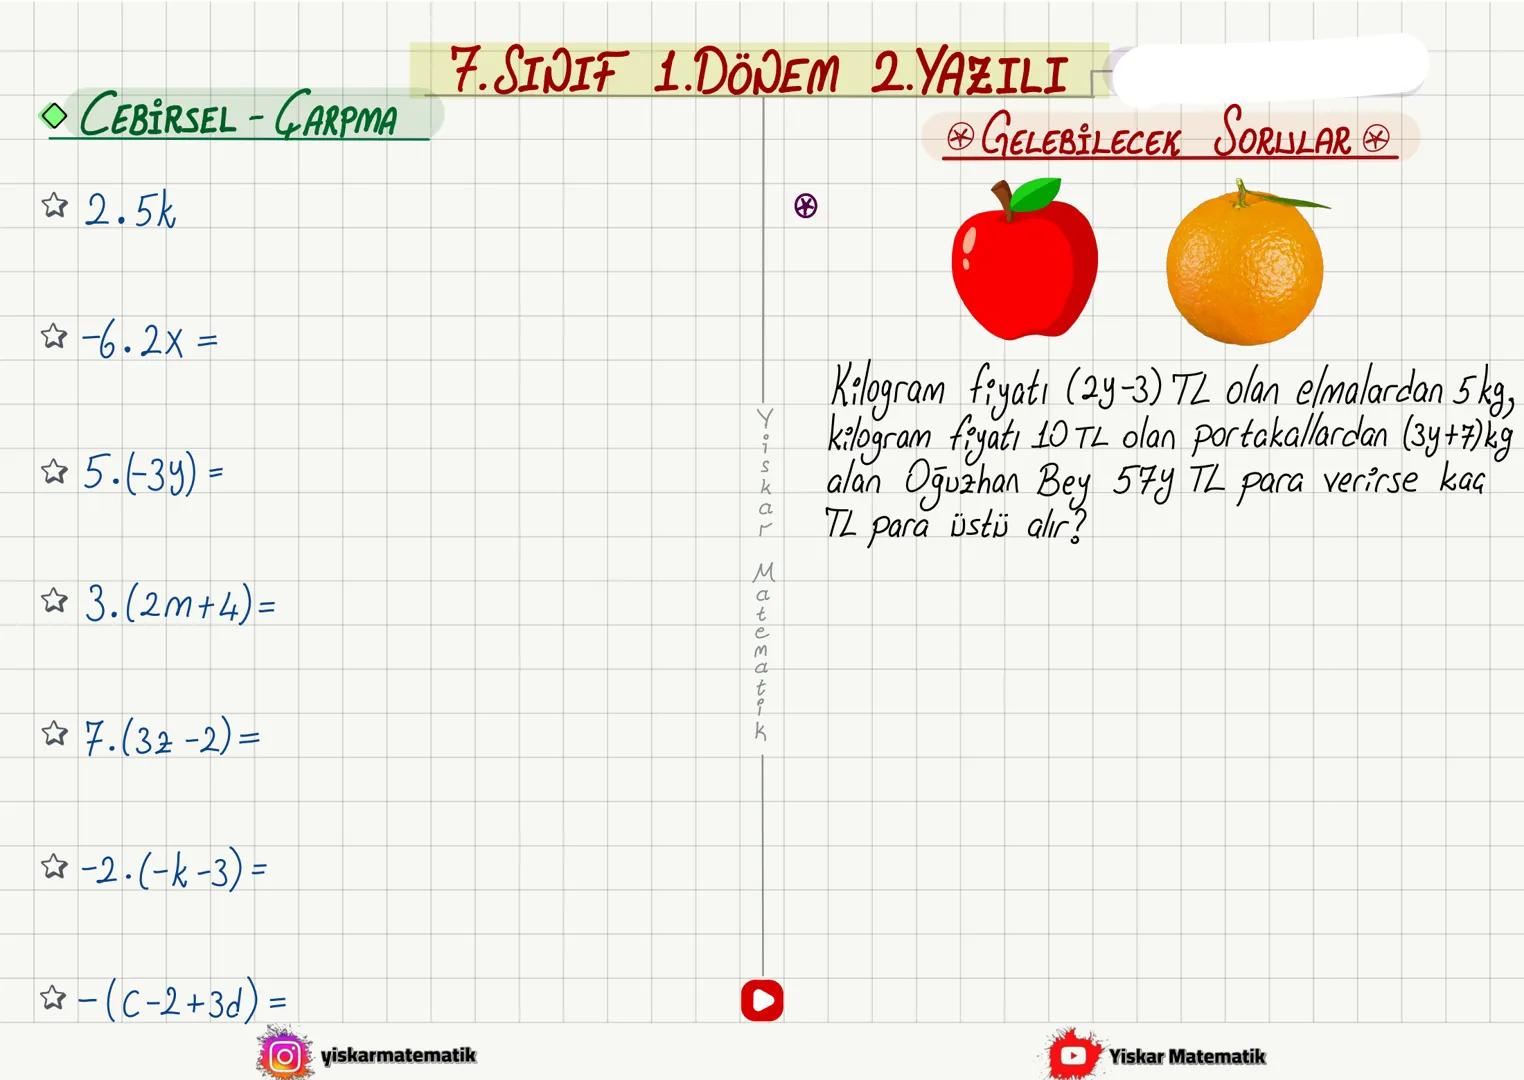 7.SINIF 1.DÖNEM 2.YAZILI
CEBİRSEL - ÇARPMA
2.5k
-6.2x =
5.(-3y) =
3.(2m+4)=
7.(3z-2)=
-2.(-k-3)=
-(c-2+3d)=
Yiskar Matematik
GELEBİLECEK SORULAR
Kilogram fiyatı (2y-3) TL olan elmalardan 5 kg,
kilogram fiyatı 10 TL olan portakallardan (3y+7)kg
alan Oğuzhan Bey 57y TL para verirse kaç
TL para üstü alır?
yiskarmatematik
Yiskar Matematik